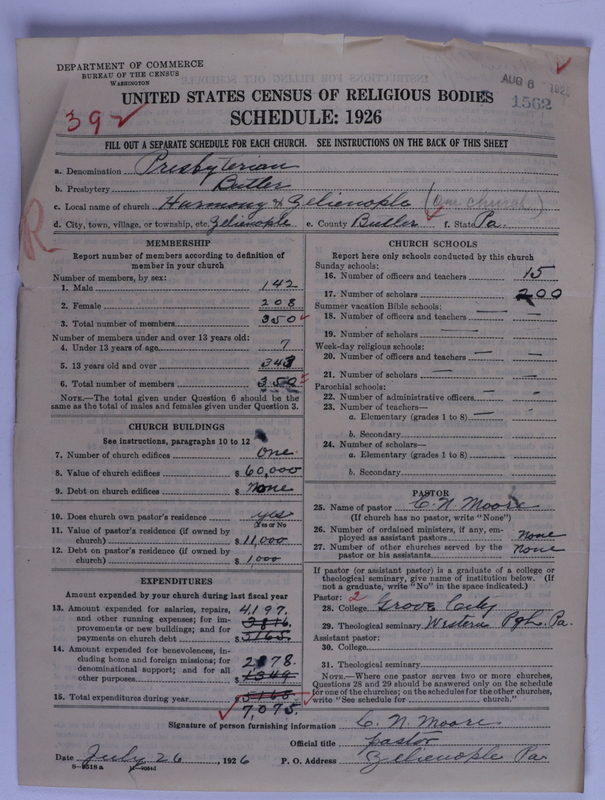 DEPARTMENT OF COMMERCE
BUREAU OF THE CENSUS
WASHINGTON
AUG 6 1926
1562
UNITED STATES CENSUS OF RELIGIOUS BODIES
SCHEDULE: 1926
392
FILL OUT A SEPARATE SCHEDULE FOR EACH CHURCH. SEE INSTRUCTIONS ON THE BACK OF THIS SHEET
a. Denomination Presbyterian
b. Presbytery Butler
c. Local name of church Harmony & Zelienople (one church)
d. City, town, village, or township, etc. Zelienople e. County Butler f. State Pa.
R
MEMBERSHIP
Report number of members according to definition of
member in your church
Number of members, by sex:
1. Male 142
2. Female 208
3. Total number of members 350
Number of members under and over 13 years old:
4. Under 13 years of age 7
5. 13 years old and over 343
6. Total number of members 350
NOTE.—The total given under Question 6 should be the
same as the total of males and females given under Question 3.
CHURCH BUILDINGS
See instructions, paragraphs 10 to 12
7. Number of church edifices One
8. Value of church edifices $ 60,000
9. Debt on church edifices $ None
10. Does church own pastor's residence yes
(Yes or No)
11. Value of pastor's residence (if owned by
church) $ 11,000
12. Debt on pastor's residence (if owned by
church) $ 1,000
EXPENDITURES
Amount expended by your church during last fiscal year
13. Amount expended for salaries, repairs,
and other running expenses; for im-
provements or new buildings; and for
payments on church debt $ 4,197. 3816. 5165.
14. Amount expended for benevolences, in-
cluding home and foreign missions; for
denominational support; and for all
other purposes $ 2878. 1349
15. Total expenditures during year 5165
7,075.
CHURCH SCHOOLS
Report here only schools conducted by this church
Sunday schools:
16. Number of officers and teachers 15
17. Number of scholars 200
Summer vacation Bible schools:
18. Number of officers and teachers —
19. Number of scholars —
Week-day religious schools:
20. Number of officers and teachers —
21. Number of scholars —
Parochial schools:
22. Number of administrative officers —
23. Number of teachers—
a. Elementary (grades 1 to 8) —
b. Secondary
24. Number of scholars—
a. Elementary (grades 1 to 8)
b. Secondary
PASTOR
25. Name of pastor C. N. Moore
(If church has no pastor, write "None")
26. Number of ordained ministers, if any, em-
ployed as assistant pastors None
27. Number of other churches served by the
pastor or his assistants None
If pastor (or assistant pastor) is a graduate of a college or
theological seminary, give name of institution below. (If
not a graduate, write "No" in the space indicated.)
Pastor: 2
28. College Grove City
29. Theological seminary Western Pgh. Pa.
Assistant pastor:
30. College
31. Theological seminary
NOTE.—Where one pastor serves two or more churches,
Questions 28 and 29 should be answered only on the schedule
for one of the churches; on the schedules for the other churches,
write "See schedule for church."
Signature of person furnishing information C. N. Moore
Official title pastor
Date July 26, 1926 P. O. Address Zelienople Pa.
8—5518a